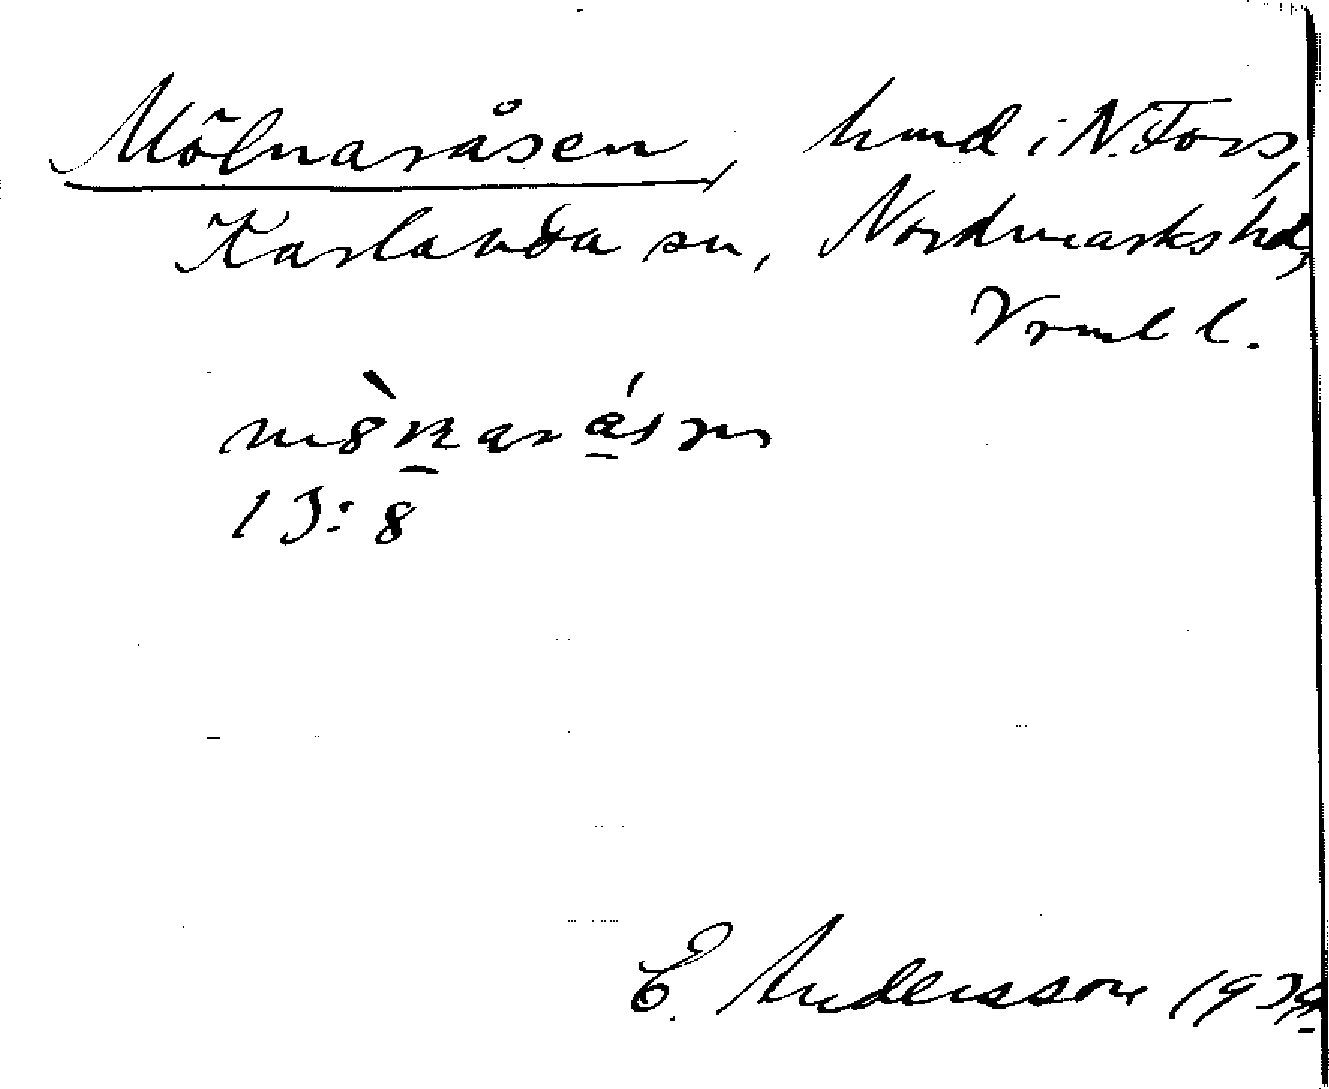 Mölnaråsen, hmd i N. Fors,
Karlanda sn, Nordmarks hd,
Vrml l.
13:8
E. Andersson